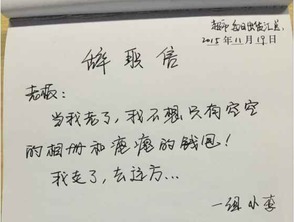 2015年11月19日
辞职信
老板：
当我老了，我不想只有空空
的相册和瘪瘪的钱包！
我走了，去远方...
一组 小李